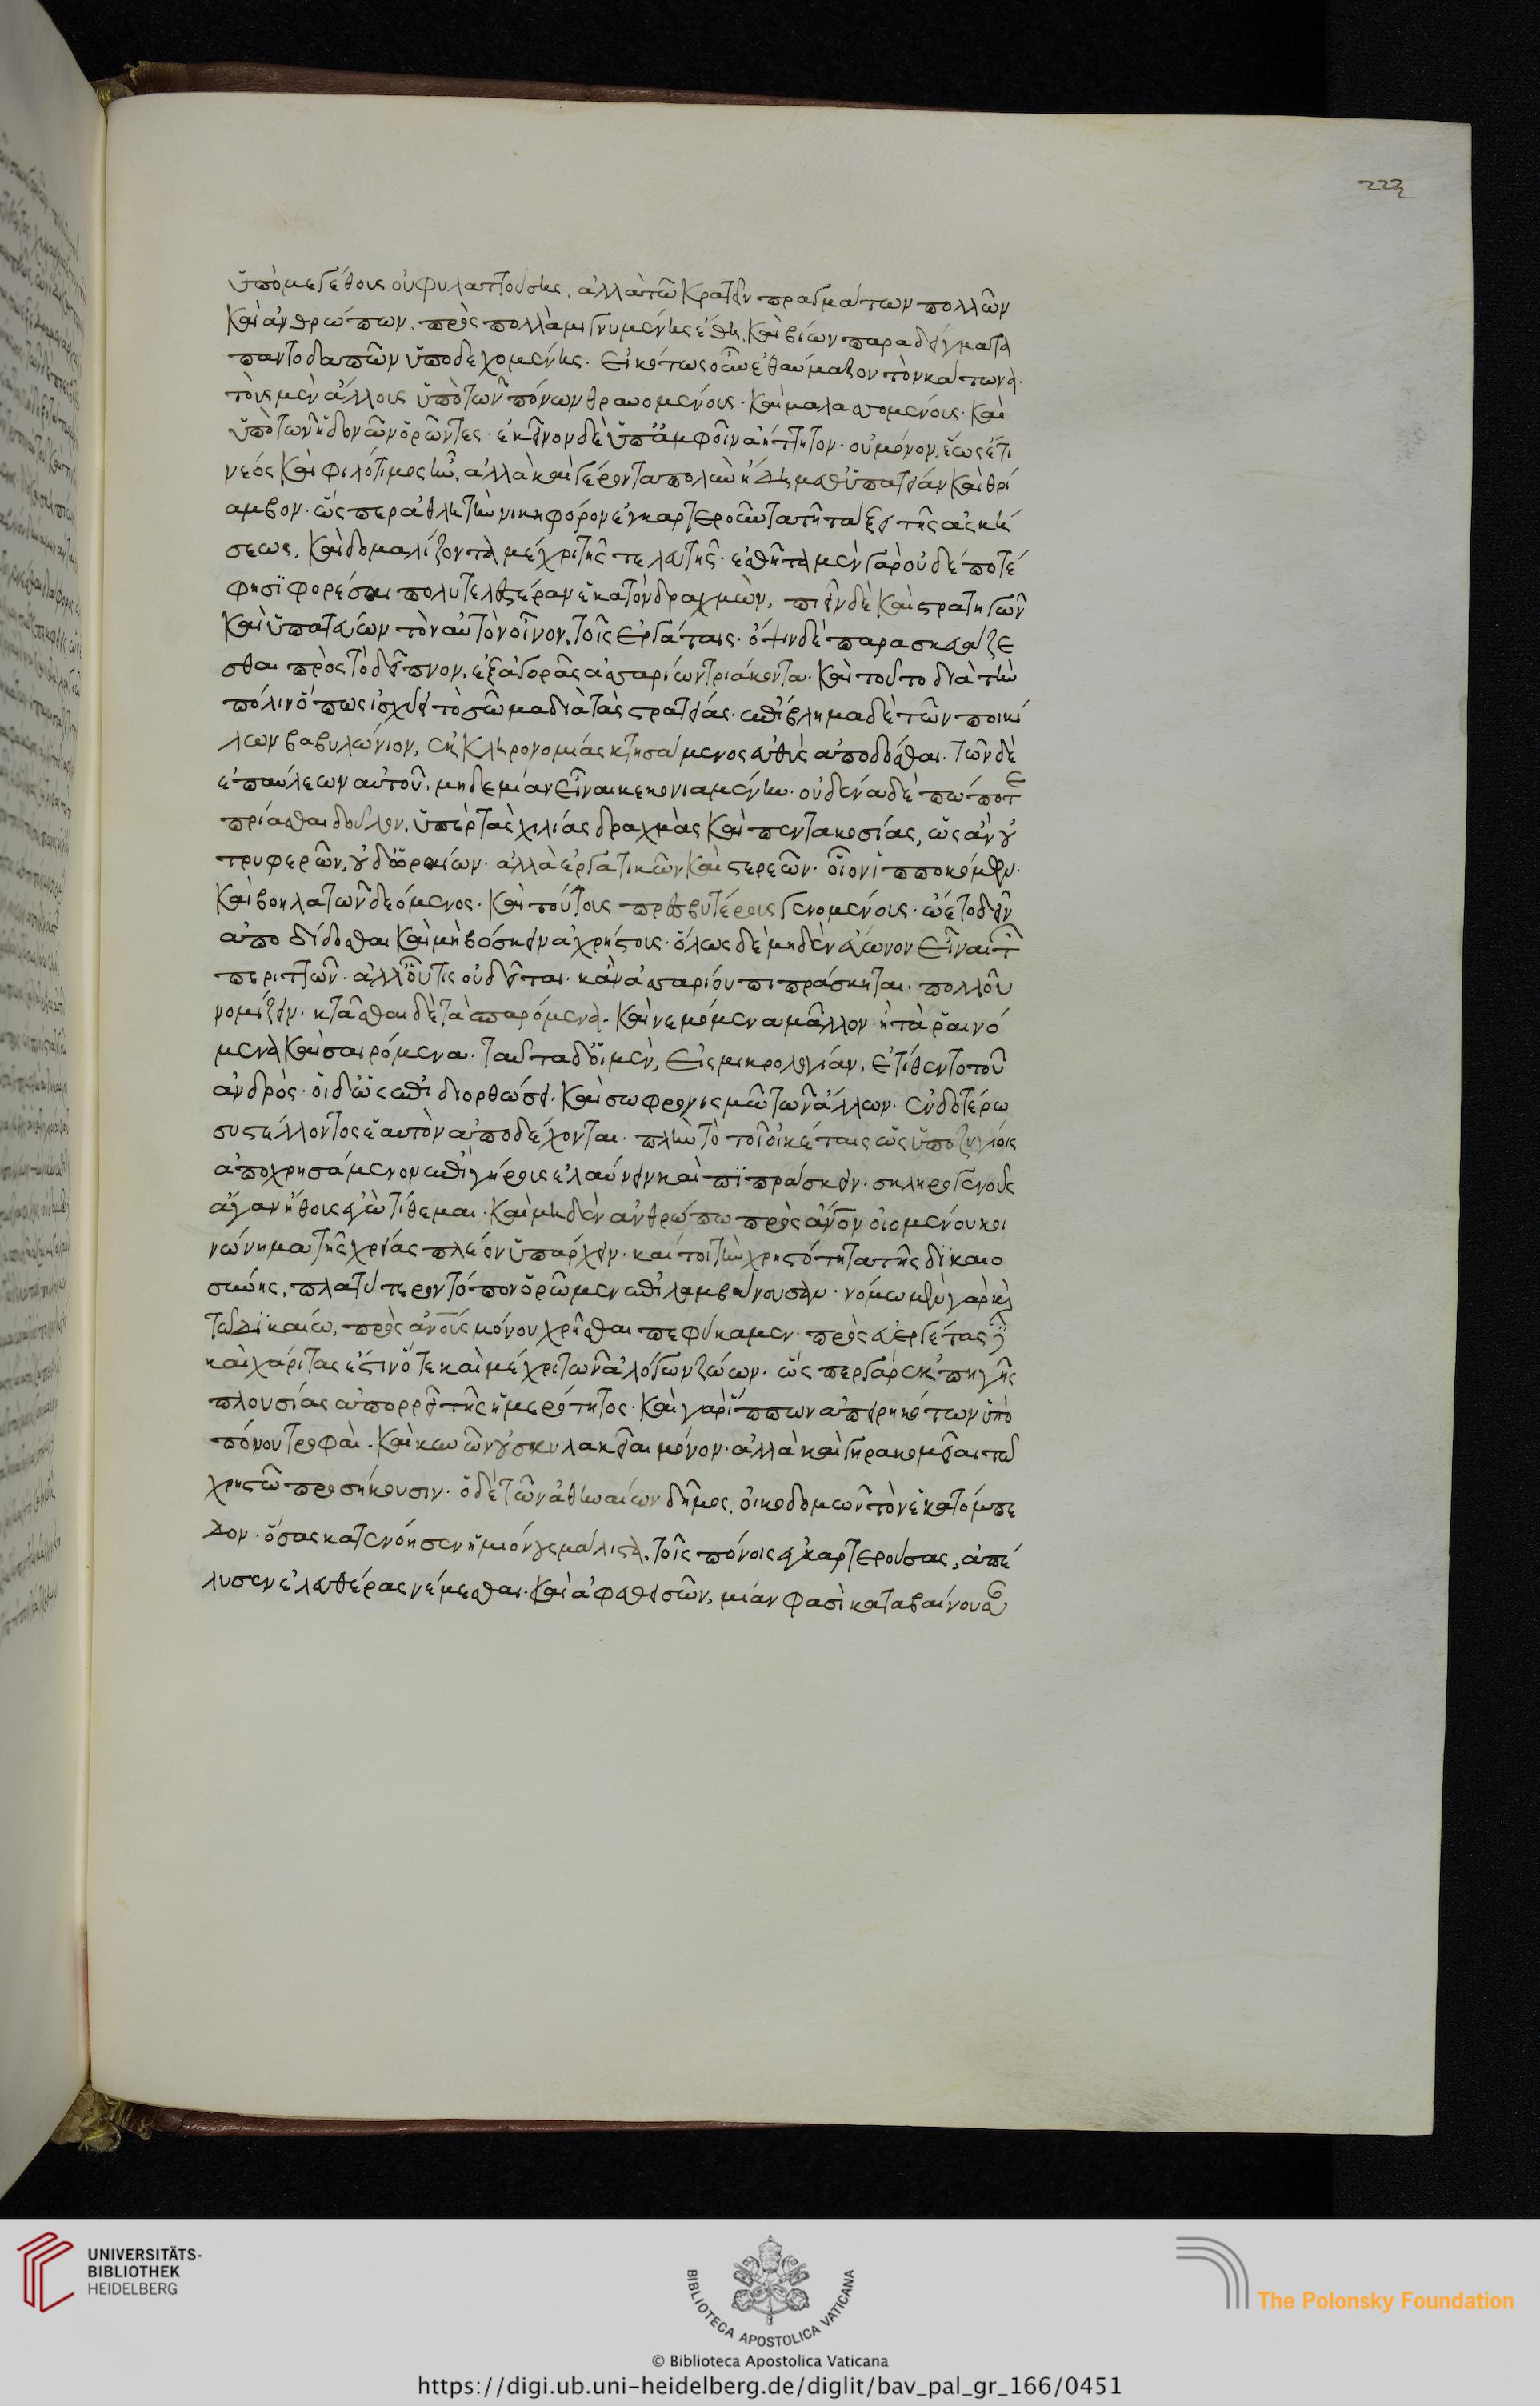 223
ὑπὸ μεγέθους οὐ φυλαττούσης. ἀλλὰ τῶ κρατεῖν πραγμάτων πολλῶν
καὶ ἀνθρώπων. πρὸς πολλὰ μιγνυμένης ἔθη, καὶ βίων παραδείγματα
παντοδαπῶν ὑποδεχομένης. εἰκότως οὖν ἐθαύμαζον τὸν κάτωνα.
τοὺς μὲν ἄλλους ὑπὸ τῶν πόνων θραυομένους. καὶ μαλασσομένους. καὶ
ὑπὸ τῶν ἡδονῶν ὁρῶντες. ἐκεῖνον δὲ ὑπ' ἀμφοῖν ἀήττητον. οὐ μόνον, ἕως ἔτι
νέος καὶ φιλότιμος ἦν, ἀλλὰ καὶ γέροντα πολιὸν ἤδη μεθ' ὑπατείαν καὶ θρί
αμβον. ὥς περ ἀθλητὴν νικηφόρον ἐγκαρτεροῦντα τῆ τάξει τῆς ἀσκή
σεως, καὶ διομαλίζοντα μέχρι τῆς τελευτῆς. ἐσθῆτα μὲν γὰρ οὐδέποτέ
φησϊ φορέσαι πολυτελεστέραν ἑκατὸν δραχμῶν, πιεῖν δὲ καὶ στρατηγῶν
καὶ ὑπατεύων τὸν αὐτὸν οἶνον, τοῖς ἐργάταις. ὄψιν δὲ παρασκευάζε
σθαι πρὸς τὸ δεῖπνον, ἐξ ἀγορᾶς ἀσσαρίων τριάκοντα. καὶ τοῦτο διὰ τὴν
πόλιν ὅπως ἰσχύει τὸ σῶμα διὰ τὰς στρατείας. ἐπίβλημα δὲ τῶν ποικί
λων βαβυλώνιον, ἐκ κληρονομίας κτησάμενος εὐθὺς ἀποδόσθαι. τῶν δὲ
ἐπαύλεων αὐτοῦ, μηδεμίαν εἶναι κεκονιαμένην. οὐδένα δὲ πώποτε
πρίασθαι δοῦλον, ὑπὲρ τὰς χιλίας δραχμὰς καὶ πεντακοσίας, ὡς ἂν οὐ
τρυφερῶν, οὐδ' ὡραίων. ἀλλὰ ἐργατικῶν καὶ στερεῶν. οἷον ἱπποκόμων.
καὶ βοηλατῶν δεόμενος. καὶ τούτους πρεσβυτέρους γενομένους. ᾤετο δεῖν
ἀποδίδοσθαι καὶ μὴ βόσκειν ἀχρήστους. ὅλως δὲ μηδὲν εὔωνον εἶναι τῶν
περιττῶν. ἀλλ' οὗ τις οὐ δεῖται. κἂν ἀσσαρίου πιπράσκηται. πολλοῦ
νομίζειν. κτᾶσθαι δὲ τὰ σπειρόμενα. καὶ νεμόμενα μᾶλλον. ἢ τὰ ῥαινό
μενα καὶ σαιρόμενα. ταῦτα δ' οἱ μὲν, εἰς μικρολογίαν, ἐτίθεντο τοῦ
ἀνδρὸς. οἱ δ' ὡς ἐπὶ διορθώσει. καὶ σωφρονισμῶ τῶν ἄλλων. ἐνδοτέρω
συστέλλοντος ἑαυτὸν ἀποδέχονται. πλὴν τὸ τοῖς οἰκέταις ὡς ὑποζυγίοις
ἀποχρησάμενον ἐπὶ γήρως ἐλαύνειν καὶ πϊπράσκειν. σκληροτένους
ἄγαν ἤθους ἐγὼ τίθεμαι. καὶ μηδὲν ἀνθρώπω πρὸς ἄνον οἰομένου κοι
νώνημα τῆς χρείας πλέον ὑπάρχειν. καί τοι τὴν χρηστότητα τῆς δϊκαιο
σύνης, πλατύτερον τόπον ὁρῶμεν ἐπιλαμβάνουσαν. νόμω μὲν γὰρ καὶ
τῶ δϊκαίω, πρὸς ἀνους μόνον χρῆσθαι πεφύκαμεν. πρὸς εὐεργεσίας δὲ
καὶ χάριτας ἔστιν ὅτε καὶ μέχρι τῶν ἀλόγων ζώων. ὥς περ γὰρ ἐκ πηγῆς
πλουσίας ἀπορρεῖ τῆς ἡμερότητος. καὶ γὰρ ἵππων ἀπειρηκότων ὑπὸ
πόνου τροφαὶ. καὶ κυνῶν οὐ σκυλακεῖαι μόνον. ἀλλὰ καὶ γηροκομεῖαι τῶ
χρηστῶ προσήκουσιν. ὁ δὲ τῶν ἀθηναίων δῆμος, οἰκοδομῶν τὸν ἑκατόμπε
δον. ὅσας κατενόησεν ἡμιόνους μάλιστα, τοῖς πόνοις ἐγκαρτερούσας, ἀπέ
λυσεν ἐλευθέρας νέμεσθαι. καὶ ἀφεθεισῶν, μίαν φασὶ καταβαίνουσαν
UNIVERSITÄTS-
BIBLIOTHEK
HEIDELBERG
BIBLIOTECA APOSTOLICA VATICANA
The Polonsky Foundation
© Biblioteca Apostolica Vaticana
https://digi.ub.uni-heidelberg.de/diglit/bav_pal_gr_166/0451